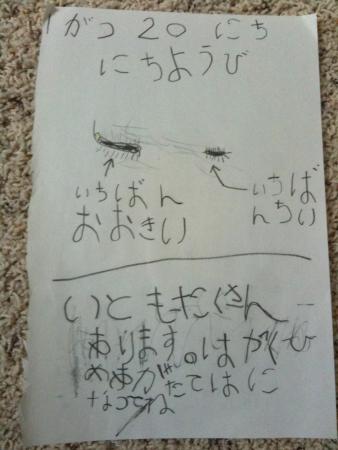 1がつ 20 にち
にちようび
いちばん
おおきい
いちば
んちい
いともたくさん
あります。
たてはに
なってね